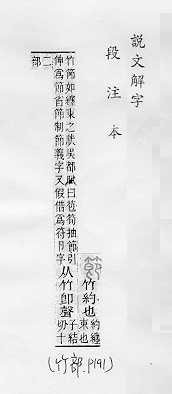 說文解字
段注本
節 竹約也 約纏束也
竹節如纏束之狀吳都賦曰苞筍抽節引
伸爲節省節制節義字又假借爲符卪字 从竹卽聲 子結切十
二部
(竹部.P191)